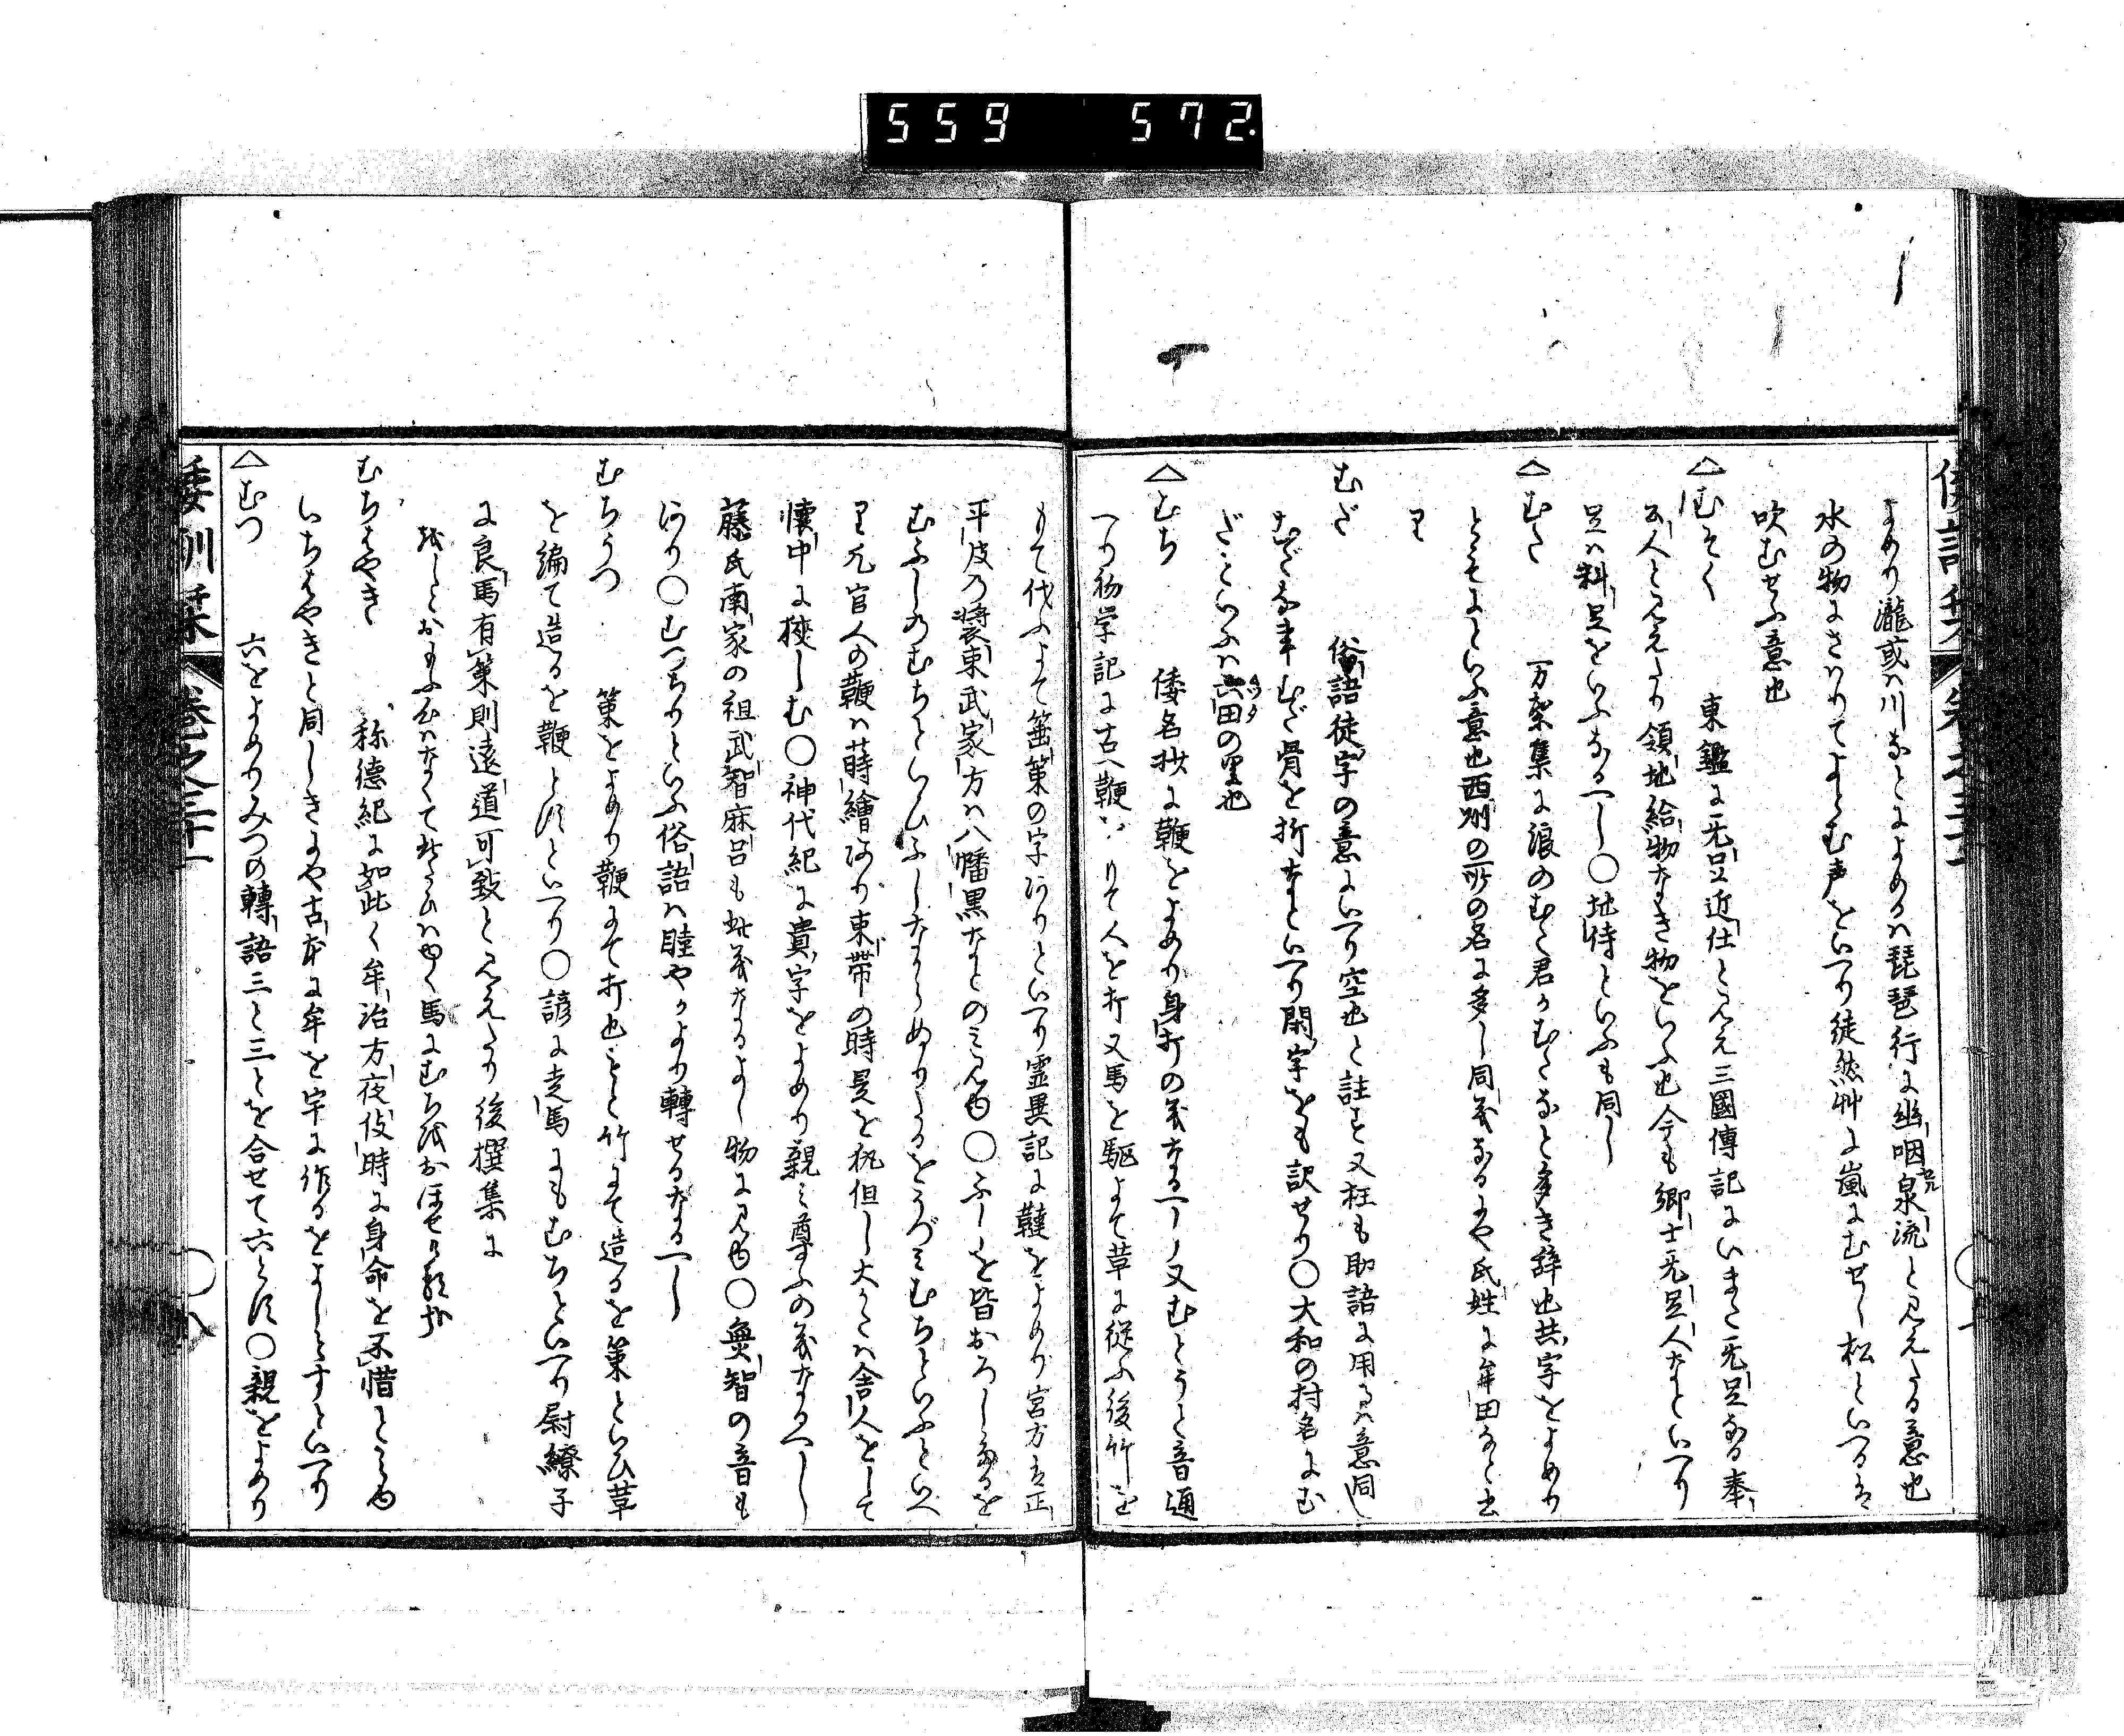 559 572
よめり瀧或ハ川なとによめるハ琵琶行に幽咽泉流と見えたる意也
水の物にさハりてよとむ声をいへり徒然艸に嵐にむせし松といへるは
吹むせふ意也
△むそく 東鑑に无足近仕と見え三國傳記にいまた无足なる奉
公人と見えたり領地給物なき物をいふ也今も郷士无足人なといへり
足ハ料足をいふなるへし〇地侍といふも同し
△むた 万葉集に浪のむた君かむたなと多き辞也共字をよめり
ともにといふ意也西州の所の名に多し同義なるにや氏姓に牟田なと云
り
むだ 俗語徒字の意にいへり空也と註せり又枉も助語に用るハ意同し
むだな事むだ骨を折なといへり閑字をも訳せり〇大和の村名にむ
だといふハ六田の里也
△むち 倭名抄に鞭をよめり身打の義なるへし又むとうと音通
へり初学記に古ヘ鞭ハもて人を打又馬を駆よて革に従ふ後竹を
もて代ふよて箠策の字ありといへり霊異記に鞾をよめり宮方は正
平皮乃裝束武家方ハ八幡黒なとのミ見ゆ〇ふしを皆おろしたるを
むふしのむちといひふしなからぬりたるをうづミむちといふといへ
り凡官人の鞭ハ蒔繪あり束帯の時是を執但し大かたハ舎人をして
懐中に挾しむ〇神代紀に貴字をよめり親ミ尊ふの義なるへし
藤氏南家の祖武智麻呂も此義なるよし物に見ゆ〇無智の音も
あり〇むつちりといふ俗語ハ睦やかより轉せるなるへし
むちうつ 策をよめり鞭にて打也もと竹にて造るを策といひ革
を編て造るを鞭とすといへり〇諺に走馬にもむちといへり尉繚子
に良馬有策則遠道可致と見えたり後撰集に
むちはやき 称德紀に如此久牟治方夜伎時に身命を不惜と見ゆ
いちはやきと同しきにや古本に牟を宇に作るをよしとすといへり
△むつ 六をよめりみつの轉語三と三とを合せて六とす〇親をよめり
倭訓栞 巻之三十一